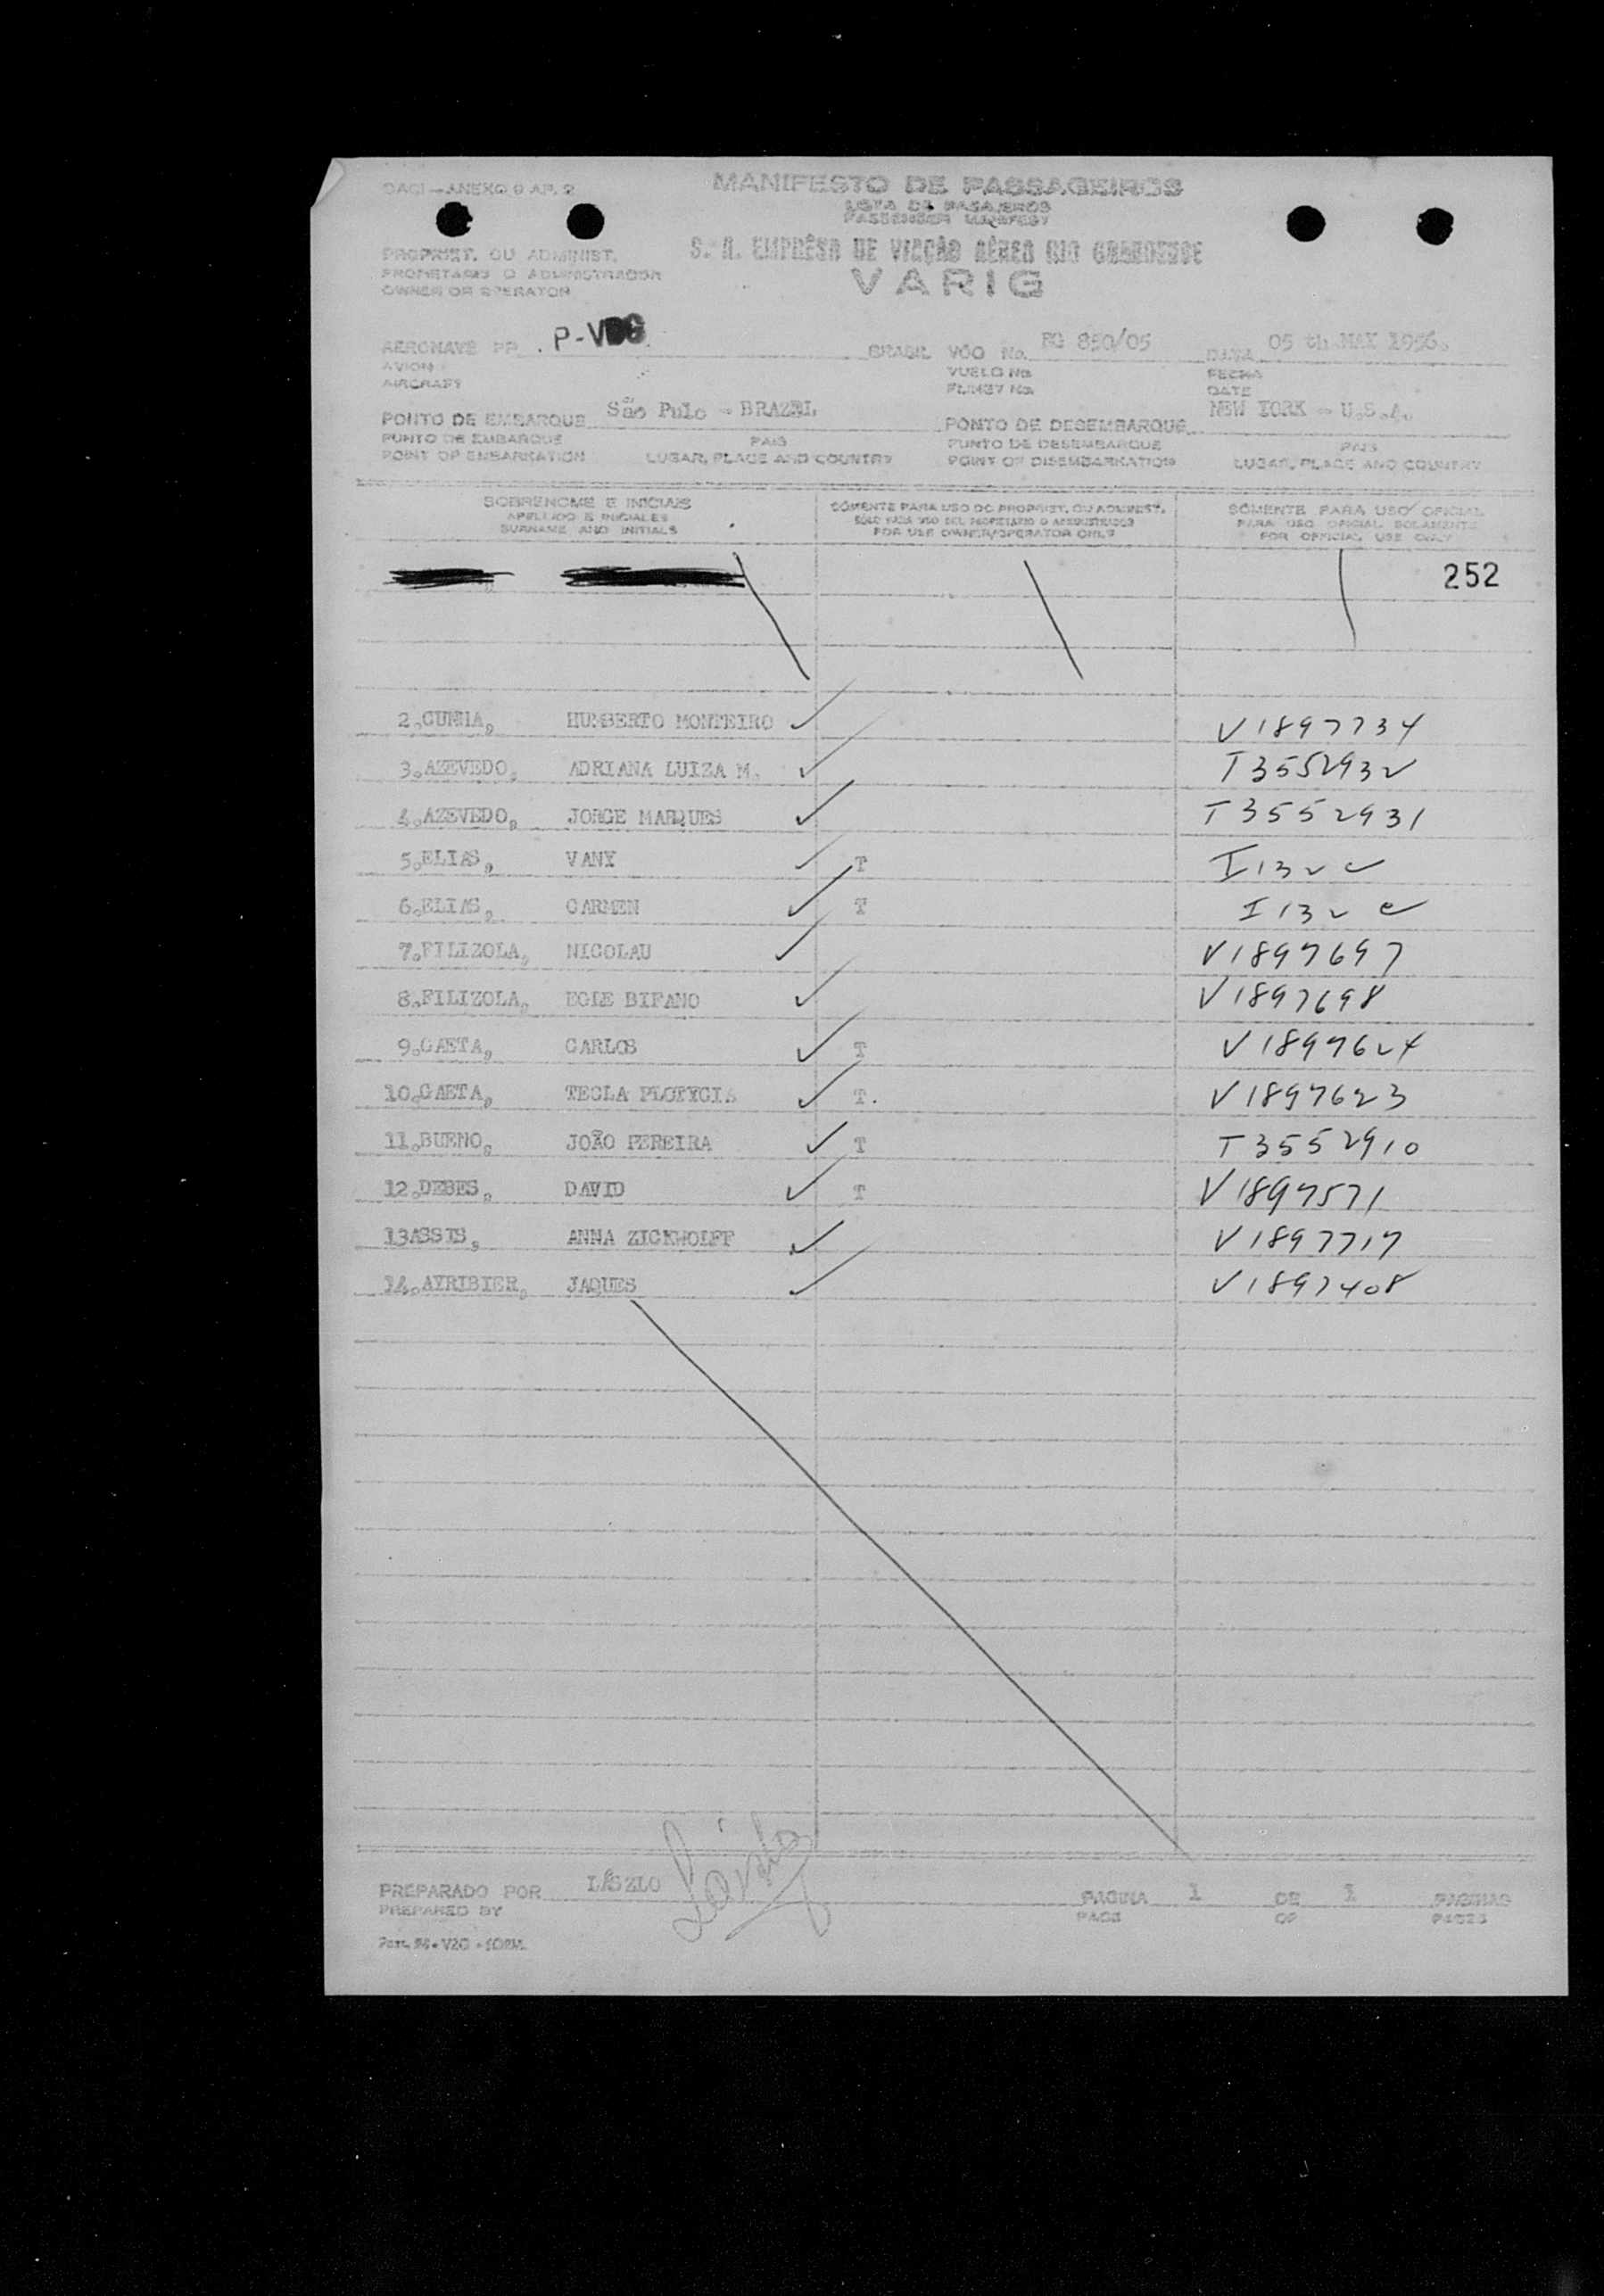 OACI — ANEXO 9 AP. 2
MANIFESTO DE PASSAGEIROS
LISTA DE PASAJEROS
PASSENGER MANIFEST
PROPRIET. OU ADMINIST.
PROPIETARIO O ADMINISTRADOR
OWNER OR OPERATOR
S. A. EMPRÊSA DE VIAÇÃO AÉREA RIO GRANDENSE
VARIG
AERONAVE PP P-VDG BRASIL VÔO No. RG 850/05 DATA 05 th MAY 1956.
AVION VUELO No. FECHA
AIRCRAFT FLIGHT No. DATE
PONTO DE EMBARQUE São Pulo - BRAZIL PONTO DE DESEMBARQUE NEW YORK - U.S.A.
PUNTO DE EMBARQUE PAIS PUNTO DE DESEMBARQUE PAIS
POINT OF EMBARKATION LUGAR, PLACE AND COUNTRY POINT OF DISEMBARKATION LUGAR, PLACE AND COUNTRY
SOBRENOME E INICIAIS SÓMENTE PARA USO DO PROPRIET. OU ADMINIST. SÓMENTE PARA USO OFICIAL
APELLIDO E INICIALES SÓLO PARA USO DEL PROPIETARIO O ADMINISTRADOR PARA USO OFICIAL SOLAMENTE
SURNAME AND INITIALS FOR USE OWNER/OPERATOR ONLY FOR OFFICIAL USE ONLY
252
2.CUNHA, HUMBERTO MONTEIRO ✓ V1897734
3.AZEVEDO, ADRIANA LUIZA M. ✓ T3552932
4.AZEVEDO, JORGE MARQUES ✓ T3552931
5.ELIAS, VANY ✓ T I132c
6.ELIAS, CARMEN ✓ T I132c
7.FILIZOLA, NICOLAU ✓ V1897697
8.FILIZOLA, EGLE BIFANO ✓ V1897698
9.GAETA, CARLOS ✓ T V1897624
10.GAETA, TECLA ✓ T. V1897623
11.BUENO, JOÃO PEREIRA ✓ T T3552910
12.DEBES, DAVID ✓ T V1897571
13ASSIS, ANNA ZICKWOLFF ✓ V1897717
14.AYRIBIER, JAQUES ✓ V1897408
PREPARADO POR LÁSZLO László PAGINA 1 DE 1 PAGINAS
PREPARED BY PAGE OF PAGES